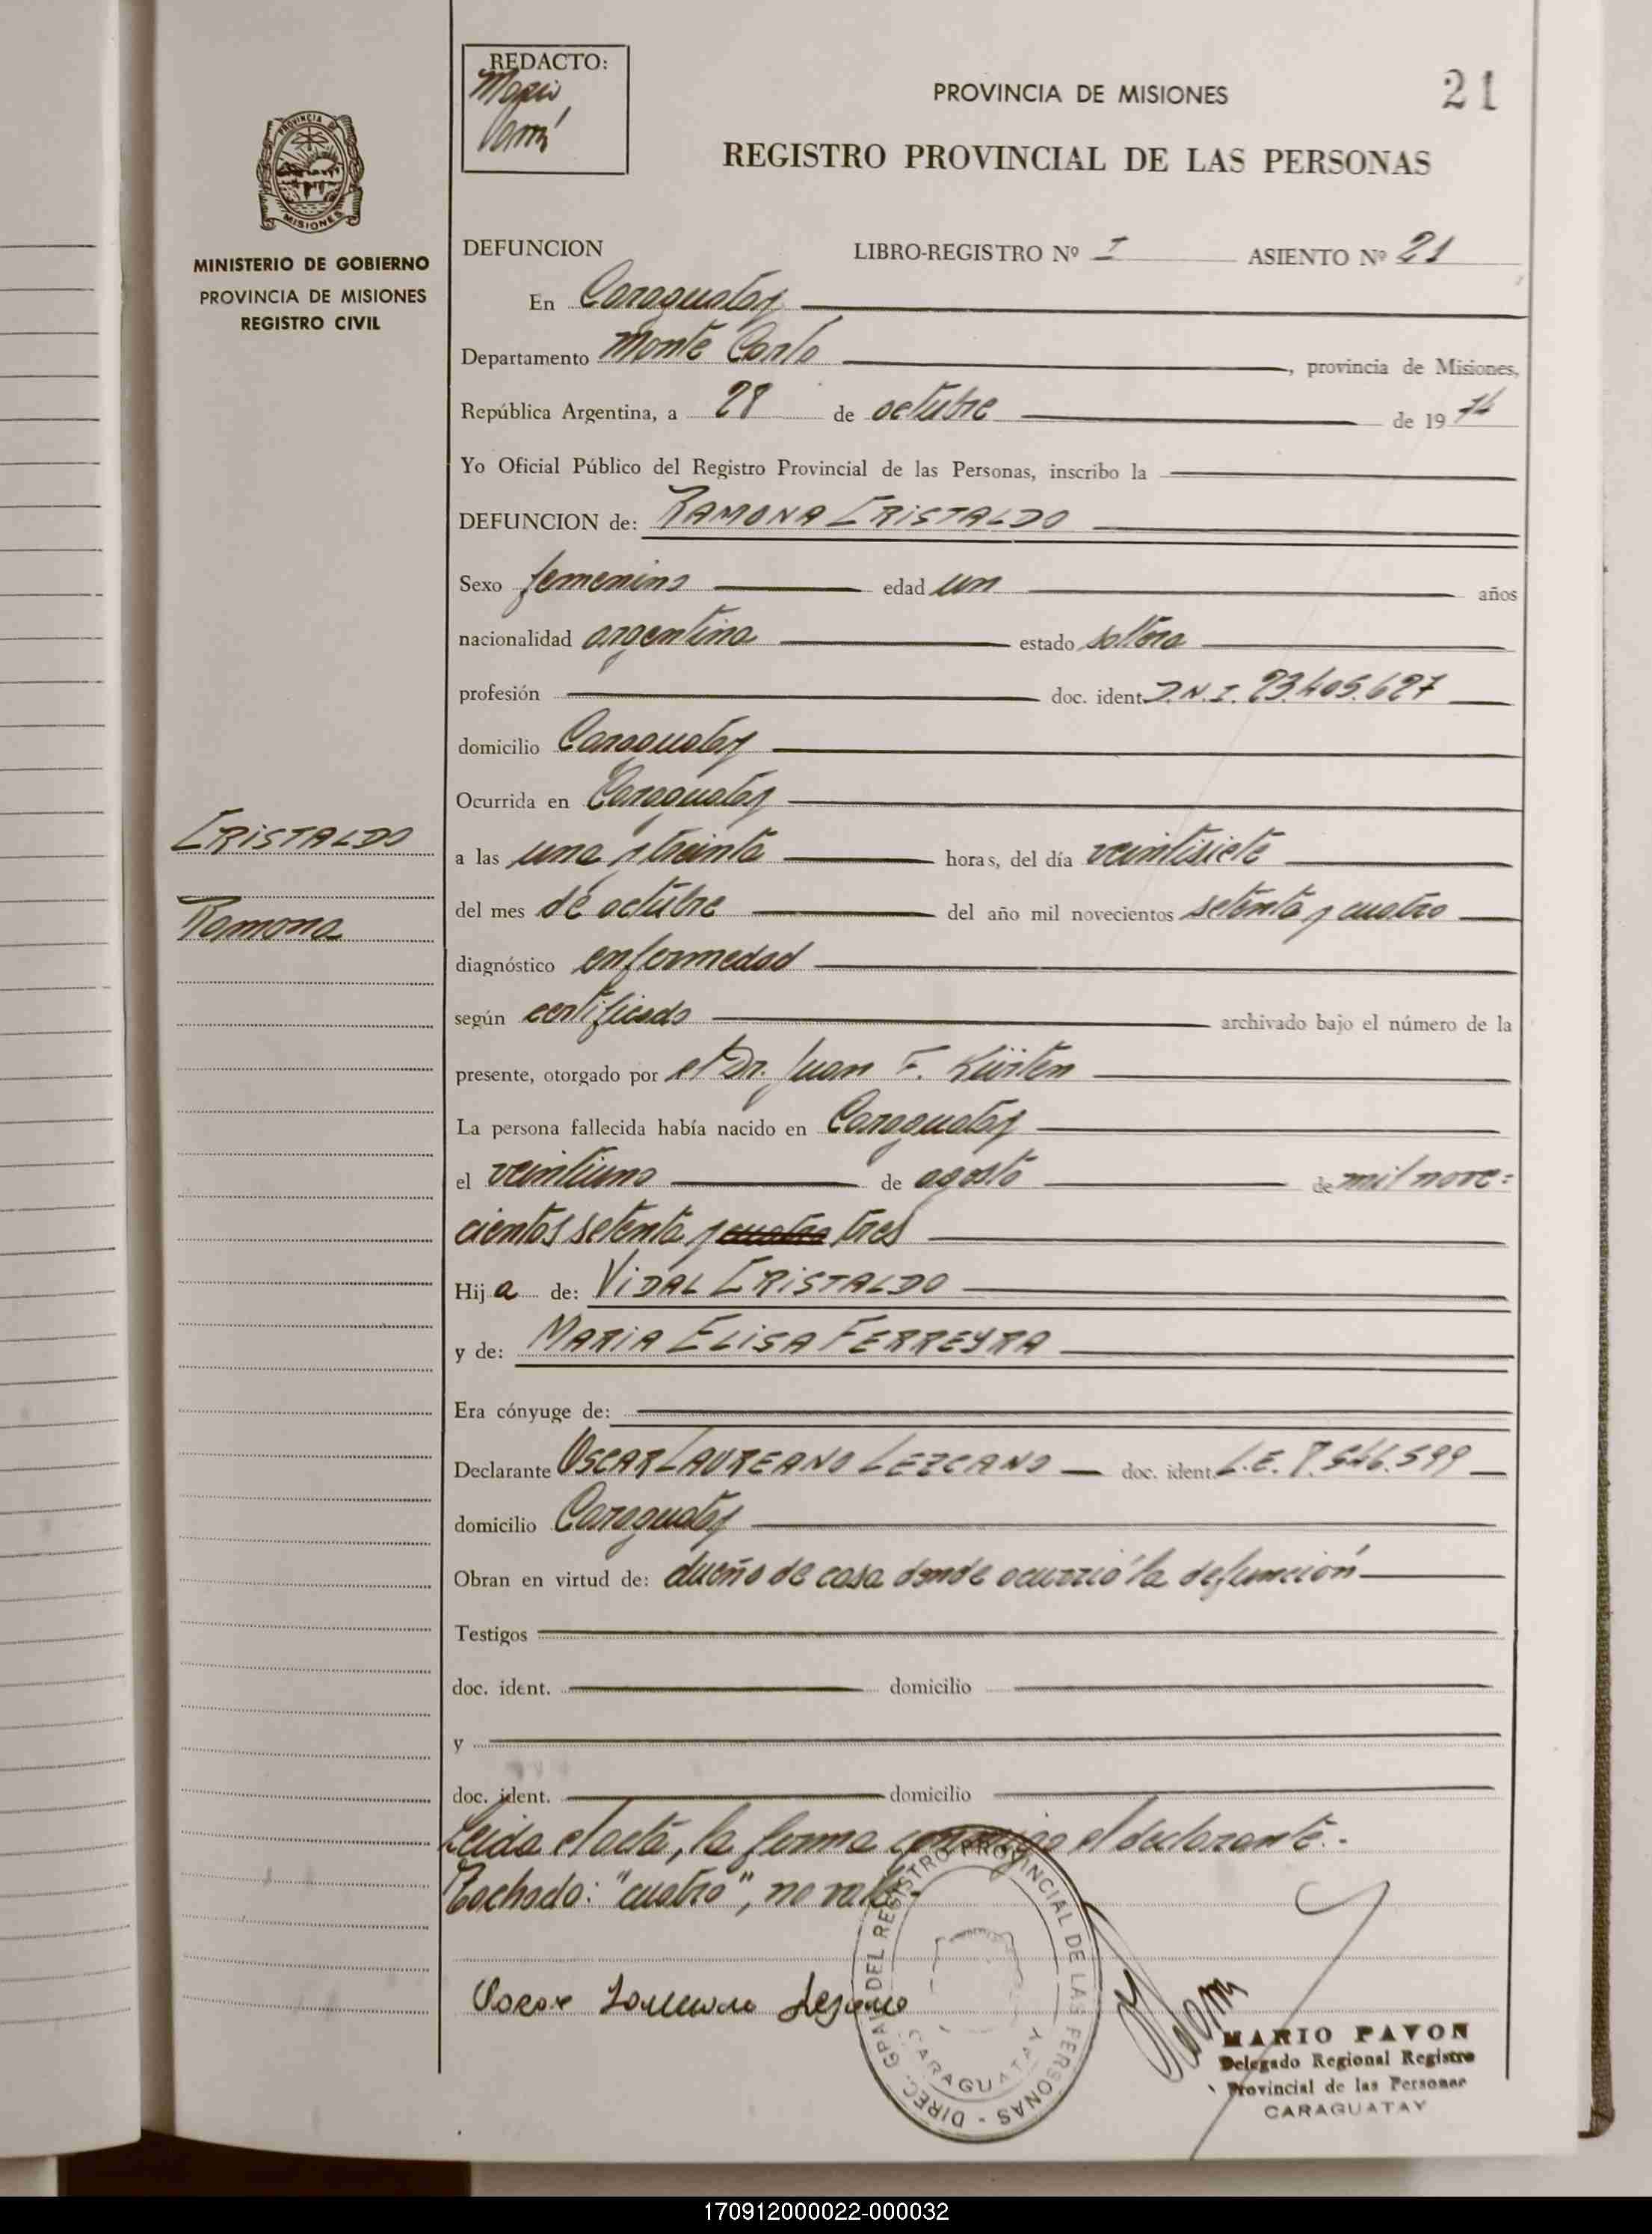 REDACTO:
Mario
PROVINCIA DE MISIONES
21
REGISTRO PROVINCIAL DE LAS PERSONAS
PROVINCIA DE
MISIONES
MINISTERIO DE GOBIERNO
PROVINCIA DE MISIONES
REGISTRO CIVIL
DEFUNCION LIBRO-REGISTRO Nº I ASIENTO Nº 21
En Caraguatay
Departamento Monte Carlo, provincia de Misiones,
República Argentina, a 28 de octubre de 1974
Yo Oficial Público del Registro Provincial de las Personas, inscribo la
DEFUNCION de: RAMONA CRISTALDO
Sexo femenino edad un años
nacionalidad argentina estado soltera
profesión doc. ident. D.N.I. 23.405.627
domicilio Caraguatay
Ocurrida en Caraguatay
CRISTALDO
Ramona
a las una y treinta horas, del día veintisiete
del mes de octubre del año mil novecientos setenta y cuatro
diagnóstico enfermedad
según certificado archivado bajo el número de la
presente, otorgado por el Dr. Juan F. Kürten
La persona fallecida había nacido en Caraguatay
el veintiuno de agosto de mil nove=
cientos setenta y cuatro tres
Hija de: VIDAL CRISTALDO
y de: MARIA ELISA FERREYRA
Era cónyuge de:
Declarante OSCAR LAUREANO LEZCANO doc. ident. L.E. 7.546.599
domicilio Caraguatay
Obran en virtud de: dueño de casa donde ocurrió la defunción
Testigos
doc. ident. domicilio
y
doc. ident. domicilio
Leida el acta, la firma conmigo el declarante.-
Tachado: "cuatro", no vale.-
Oscar Laureano Lezcano
DIREC. GRAL. DEL REGISTRO PROVINCIAL DE LAS PERSONAS -
CARAGUATAY
MARIO PAVON
Delegado Regional Registro
Provincial de las Personas
CARAGUATAY
170912000022-000032